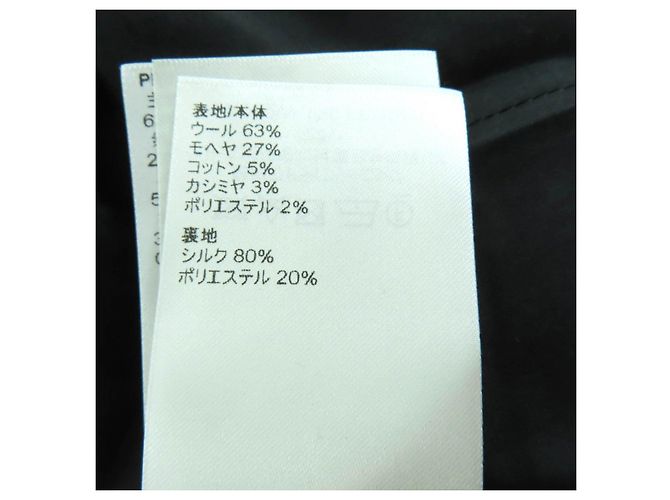 表地/本体
ウール 63%
モヘヤ 27%
コットン 5%
カシミヤ 3%
ポリエステル 2%
裏地
シルク 80%
ポリエステル 20%